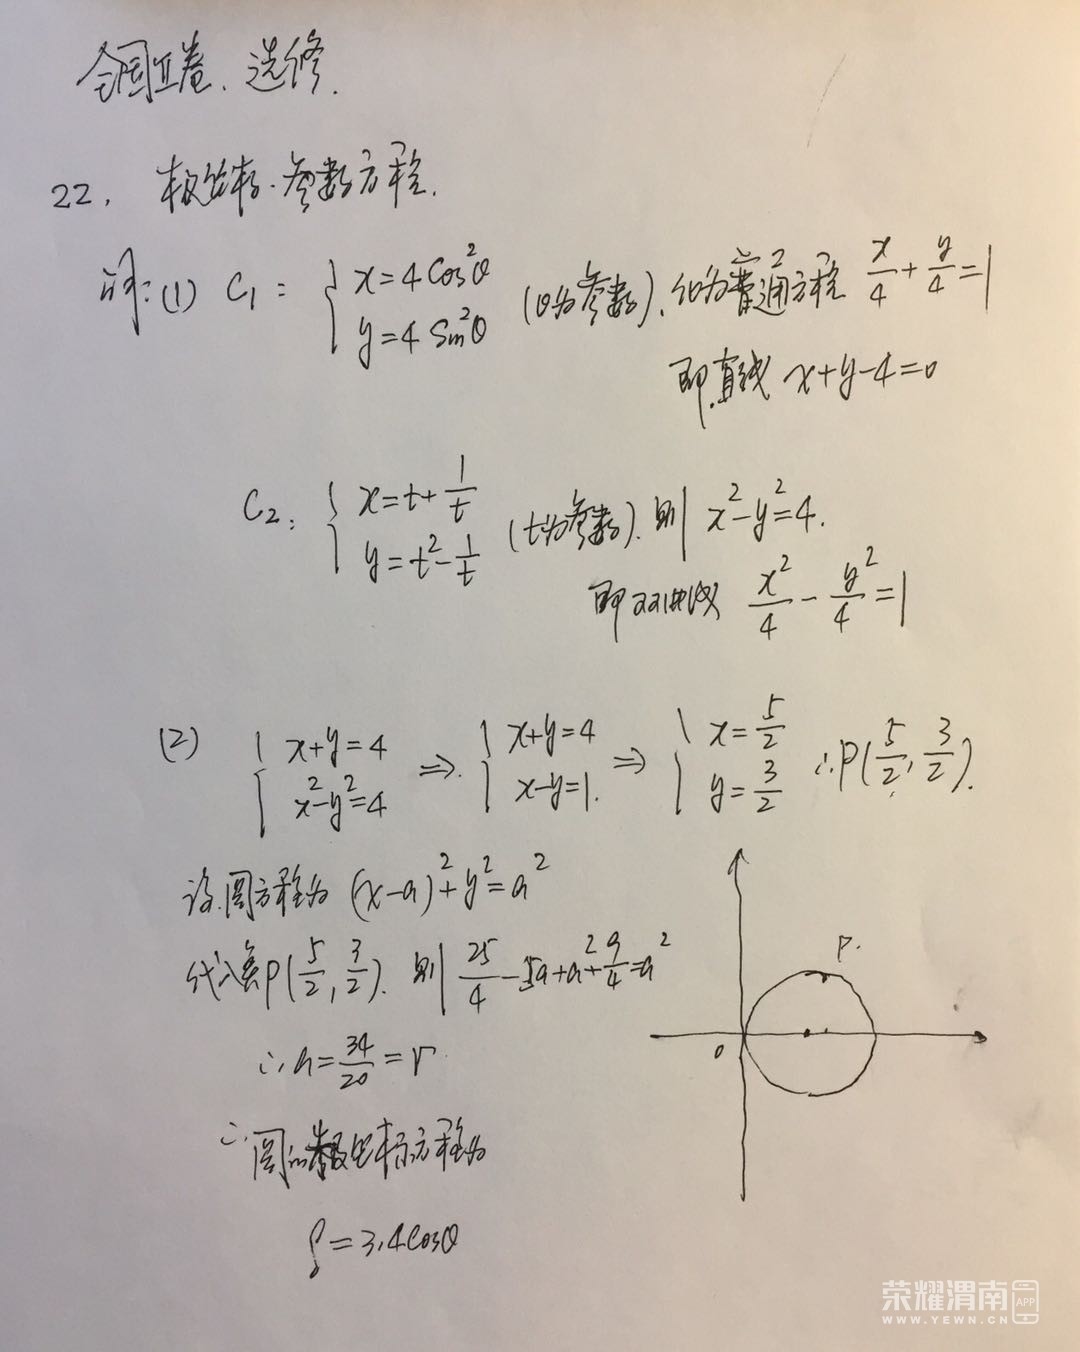 全国II卷. 选修.
22. 极坐标·参数方程.
解:(1) C₁: { x=4cos²θ y=4sin²θ (θ为参数). 化为普通方程 x/4 + y/4 = 1
即直线 x+y-4=0
C₂: { x=t+1/t y=t²-1/t (t为参数). 则 x²-y²=4.
即双曲线 x²/4 - y²/4 = 1
(2) { x+y=4 x²-y²=4 ⇒ { x+y=4 x-y=1. ⇒ { x=5/2 y=3/2 ∴P(5/2, 3/2).
设圆方程为 (x-a)²+y²=a²
代入点P(5/2, 3/2). 则 25/4-5a+a²+9/4=a²
∴a=34/20=r.
∴圆的极坐标方程为
ρ=3.4cosθ
P.
0
荣耀渭南 APP
WWW.YEWN.CN